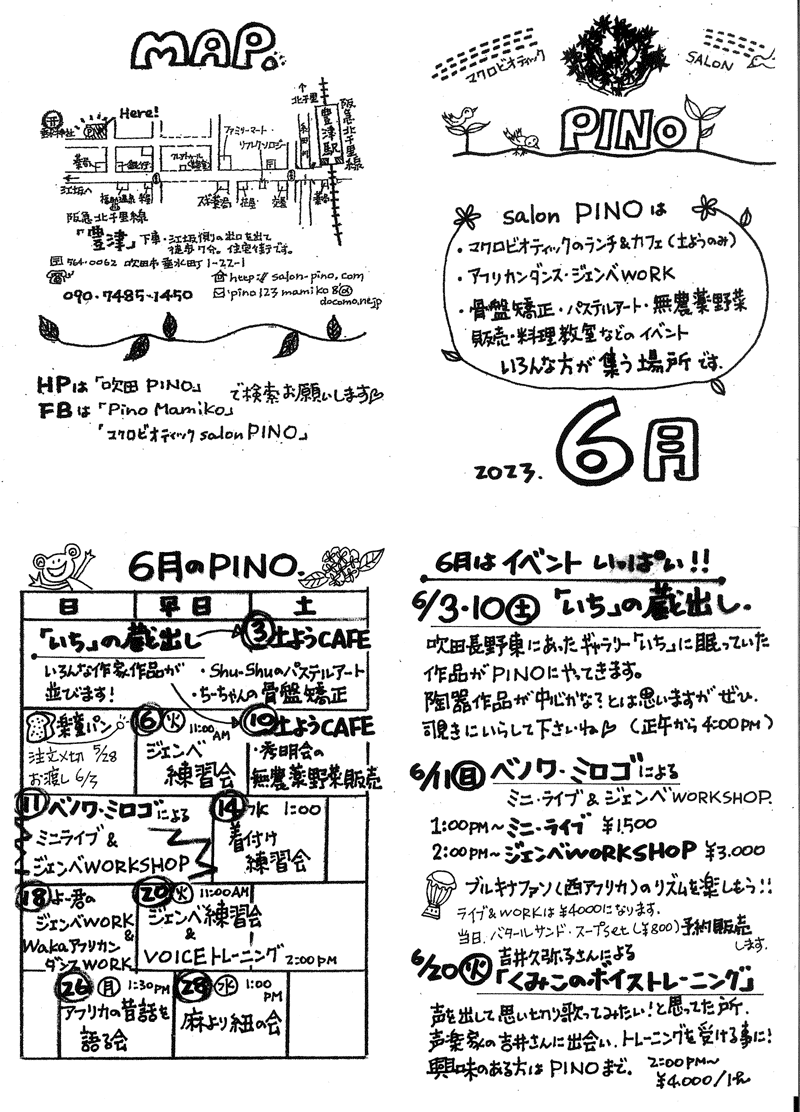 MAP.
Here!
PINO
ファミリーマート
リフレクソロジー
北千里
豊津駅
阪急北千里線
江坂へ
阪急北千里線
「豊津」下車・江坂側の出口を出て
徒歩7分。住宅街です。
564-0062 吹田市垂水町1-22-1
http://salon-pino.com
090-7485-1450
pino123mamiko8@
docomo.ne.jp
HPは「吹田PINO」で検索お願いします
FBは「Pino Mamiko」
「マクロビオティックsalon PINO」
マクロビオティック
SALON
PINO
salon PINOは
・マクロビオティックのランチ&カフェ(土ようのみ)
・アフリカンダンス・ジェンベWORK
・骨盤矯正・パステルアート・無農薬野菜
販売・料理教室などのイベント
いろんな方が集う場所です。
2023. 6月
6月のPINO.
日 平日 土
「いち」の蔵出し
いろんな作家作品が
並びます!
3 土ようCAFE
・Shu-Shuのパステルアート
・ちーちゃんの骨盤矯正
楽童パン
注文〆切 5/28
お渡し 6/3
6 火 11:00AM
ジェンベ
練習会
10 土ようCAFE
・秀明会の
無農薬野菜販売
11 ベノワ・ミロゴによる
ミニライブ&
ジェンベWORKSHOP
14 水 1:00
着付け
練習会
18 よー君の
ジェンベWORK
&
Wakaアフリカン
ダンスWORK
20 火 11:00AM
ジェンベ練習会
&
VOICEトレーニング 2:00PM
26 月 1:30PM
アフリカの昔話を
語る会
28 水 1:00PM
麻より紐の会
6月はイベントいっぱい!!
6/3・10 土 「いち」の蔵出し.
吹田長野東にあったギャラリー「いち」に眠っていた
作品がPINOにやってきます。
陶器作品が中心かな?とは思いますがぜひ、
覗きにいらして下さいね (正午から4:00PM)
6/11 日 ベノワ・ミロゴによる
ミニ・ライブ&ジェンベWORKSHOP.
1:00PM~ミニ・ライブ ¥1,500
2:00PM~ジェンベWORKSHOP ¥3.000
ブルキナファソ(西アフリカ)のリズムを楽しもう!!
ライブ&WORKは¥4000になります。
当日、バタールサンド・スープset(¥800)予約販売
します。
6/20 火 吉井久弥子さんによる
「くみこのボイストレーニング」
声を出して思い切り歌ってみたい!と思ってた所、
声楽家の吉井さんに出会い、トレーニングを受ける事に!
興味のある方はPINOまで。 2:00PM~
¥4.000/1h